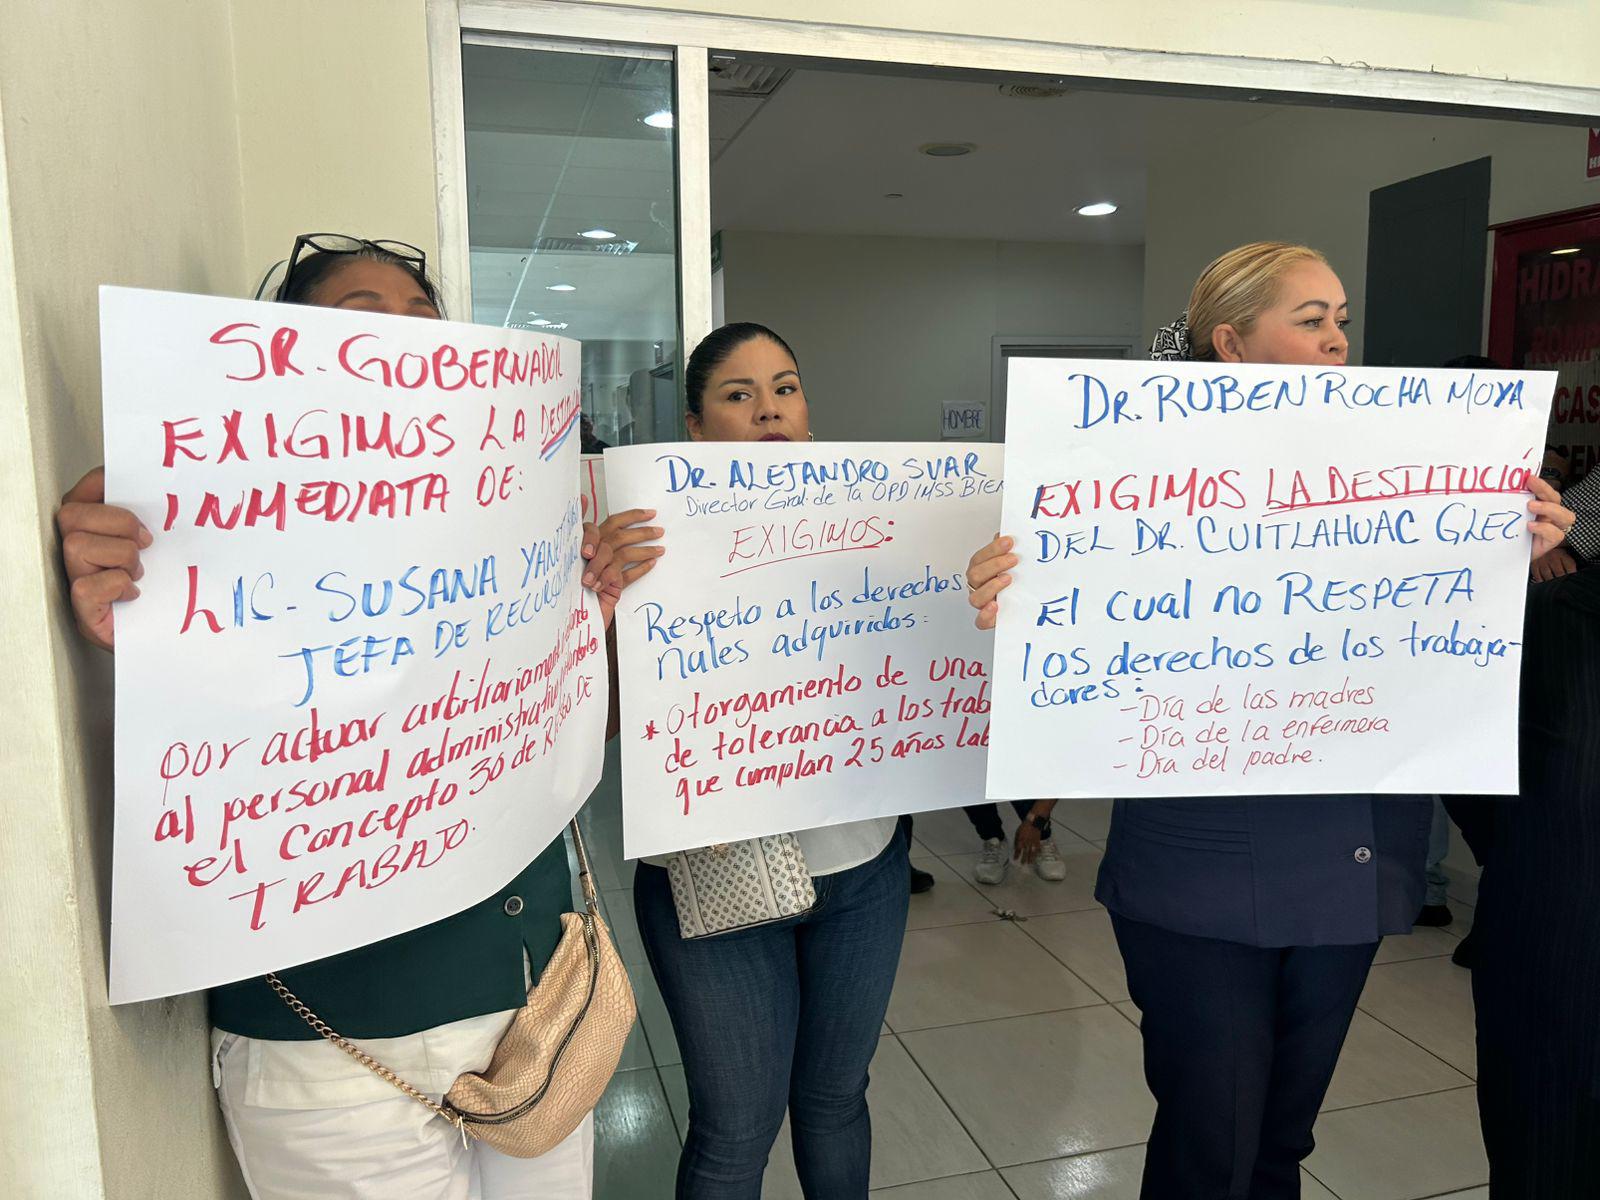 SR. GOBERNADOR
EXIGIMOS LA
INMEDIATA DE:
LIC. SUSANA
JEFA DE
por actuar arbitrariamente
al personal administrativo
el Concepto 30 de RIESGO DE
TRABAJO.
DR. ALEJANDRO SVAR
Director Gral. de la OPD IMSS BIEN
EXIGIMOS:
Respeto a los derechos
nales adquiridos:
* Otorgamiento de una
de tolerancia a los trab
que cumplan 25 años Lab
DR. RUBEN ROCHA MOYA
EXIGIMOS LA DESTITUCIÓN
DEL DR. CUITLAHUAC GLEZ.
El cual no RESPETA
los derechos de los trabaja-
dores:
- Día de las madres
- Día de la enfermera
- Día del padre.
HOMBRE
HIDRA
ROMP
CAS